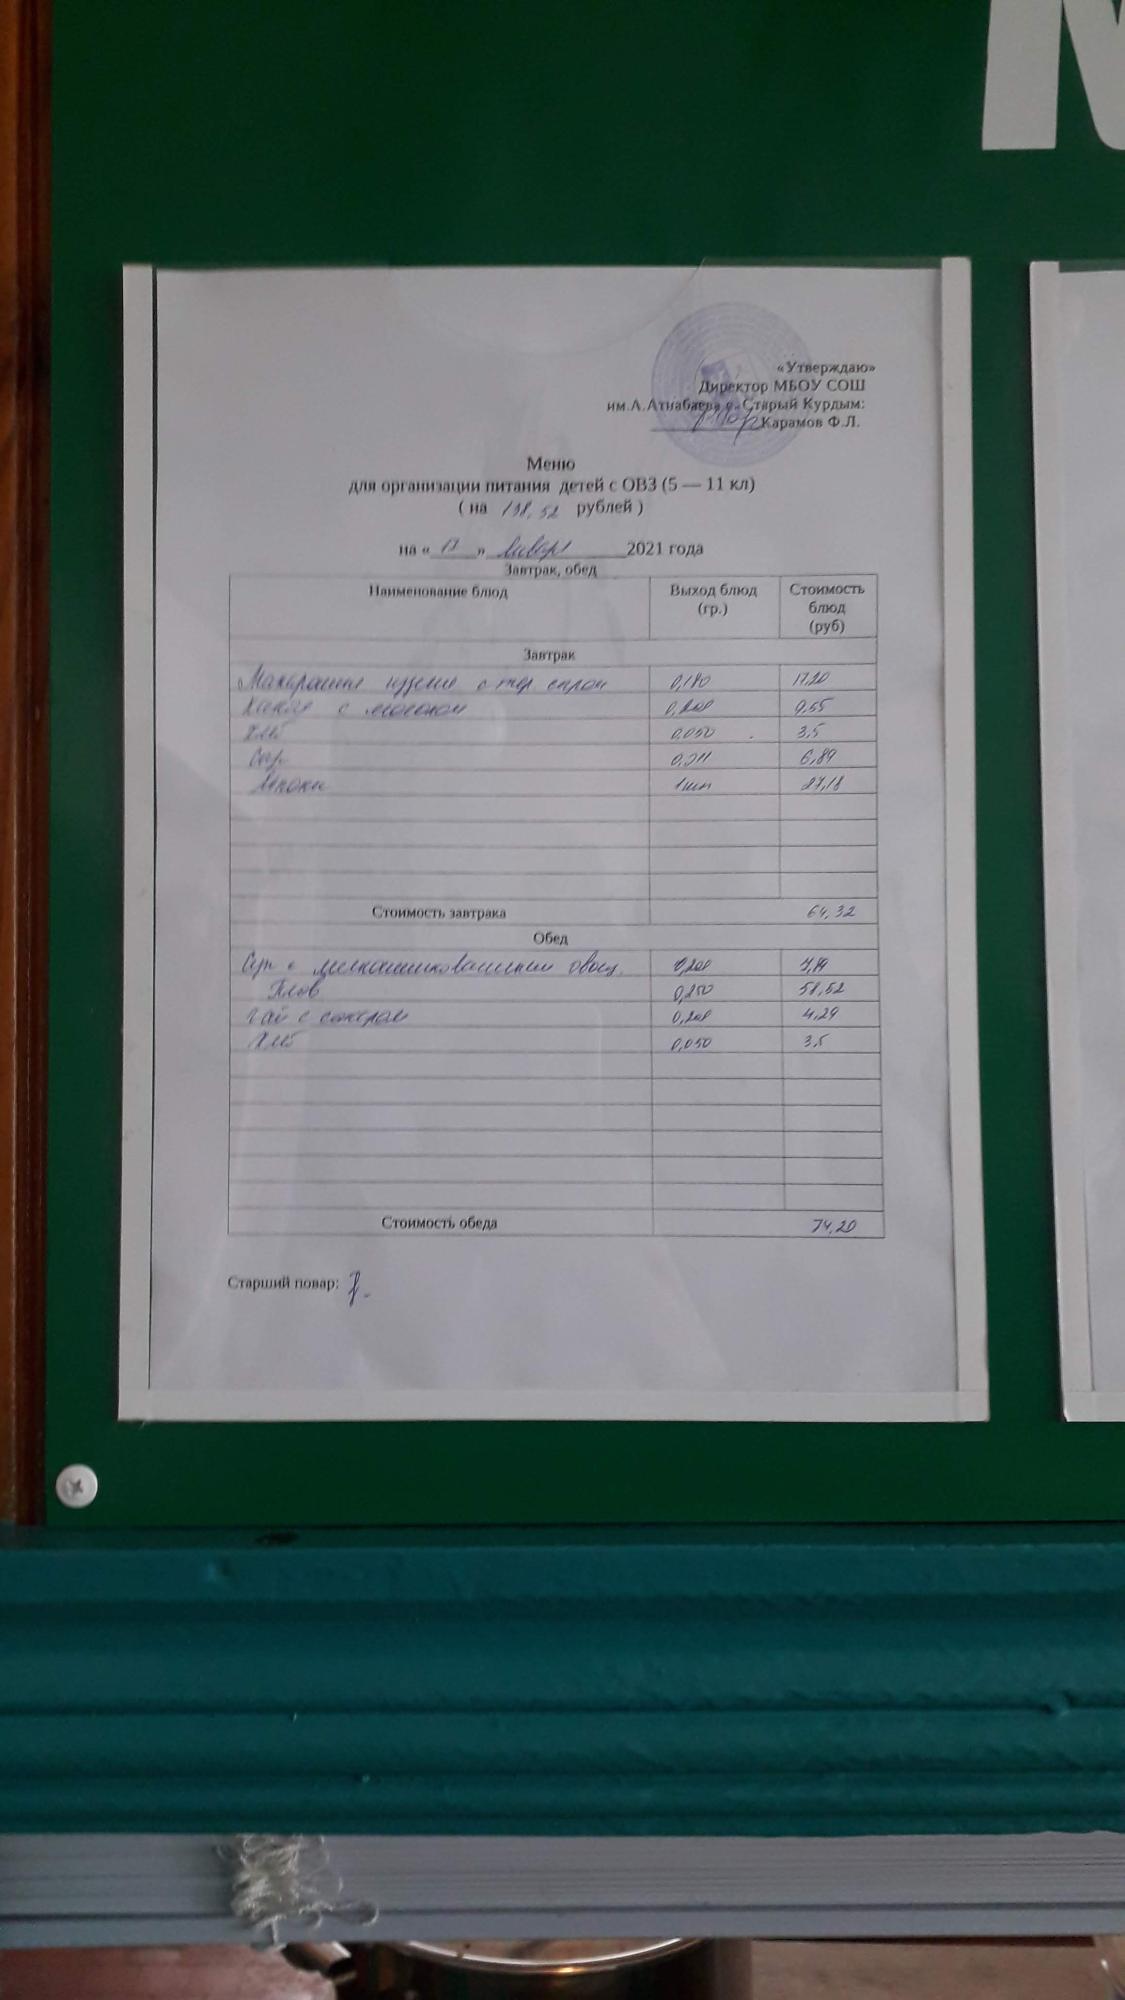 М
«Утверждаю»
Директор МБОУ СОШ
им.А.Атнабаева с. Старый Курдым:
Карамов Ф.Л.
Меню
для организации питания детей с ОВЗ (5 — 11 кл)
( на 138,52 рублей )
на « » января 2021 года
Завтрак, обед
Наименование блюд Выход блюд (гр.) Стоимость блюд (руб)
Завтрак
Макаронные изделие с тер сыром 0,180 17,20
Какао с молоком 0,200 9,55
Хлеб 0,050 3,5
Сыр 0,011 6,89
1шт 27,18
Стоимость завтрака 64,32
Обед
Суп с мелкошинкованными овощ. 0,200 7,89
Плов 0,250 58,52
Чай с сахаром 0,200 4,29
Хлеб 0,050 3,5
Стоимость обеда 74,20
Старший повар: